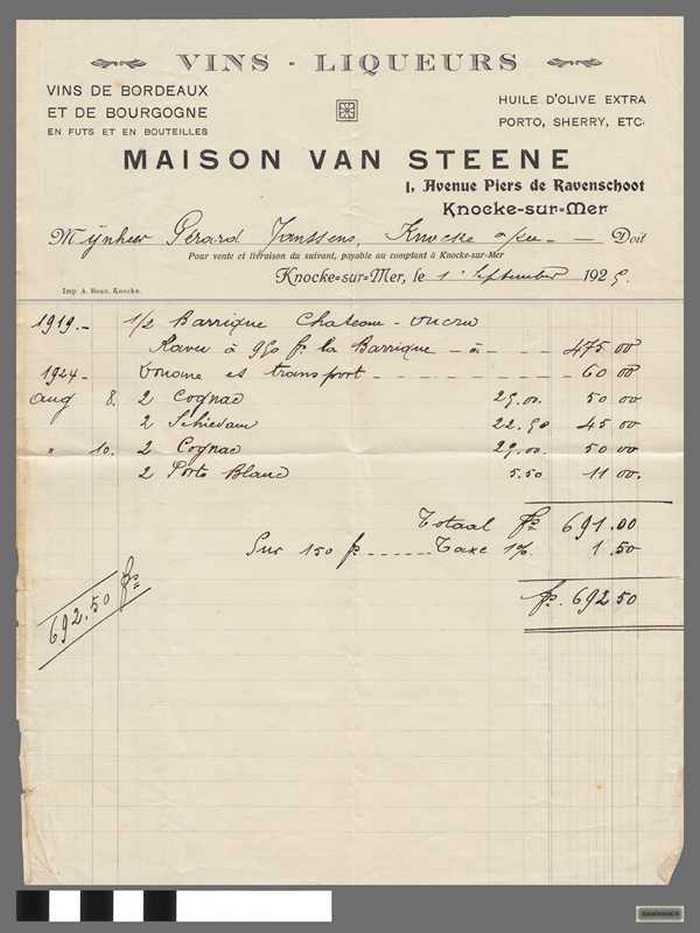 VINS - LIQUEURS
VINS DE BORDEAUX
ET DE BOURGOGNE
EN FUTS ET EN BOUTEILLES
HUILE D'OLIVE EXTRA
PORTO, SHERRY, ETC.
MAISON VAN STEENE
1, Avenue Piers de Ravenschoot
Knocke-sur-Mer
Mijnheer Gerard Janssens, Knocke Doit
Pour vente et livraison du suivant, payable au comptant à Knocke-sur-Mer
Knocke-sur-Mer, le 1 September 1925.
Imp A. Knocke.
1919.- 1/2 Barrique Chateau
à 950 fr la Barrique - 475 00
1924 - Douane et transport - 60 00
Aug 8. 2 Cognac 25.00. 50 00
2 Schiedam 22.50 45 00
" 10. 2 Cognac 25.00. 50 00
2 Porto Blanc 5.50 11 00.
Totaal fr 691.00
Sur 150 fr. Taxe 1% 1.50
fr. 692 50
692.50 fr